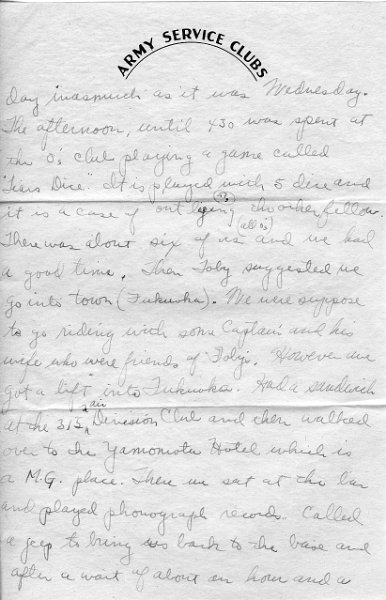 ARMY SERVICE CLUBS
day inasmuch as it was Wednesday.
The afternoon, until 430 was spent at
the O's club playing a game called
"Liars Dice". It is played with 5 dice and
it is a case of out lying the other fellow.
There was about six of us (all Os) and we had
a good time. Then Toby suggested we
go into town (Fukuoka). We were suppose
to go riding with some Captain and his
wife who were friends of Toby's. However we
got a lift into Fukuoka. Had a sandwich
at the 315 air Division Club and then walked
over to the Yamomotu Hotel which is
a M.G. place. There we sat at the bar
and played phonograph records. Called
a jeep to bring us back to the base and
after a wait of about an hour and a